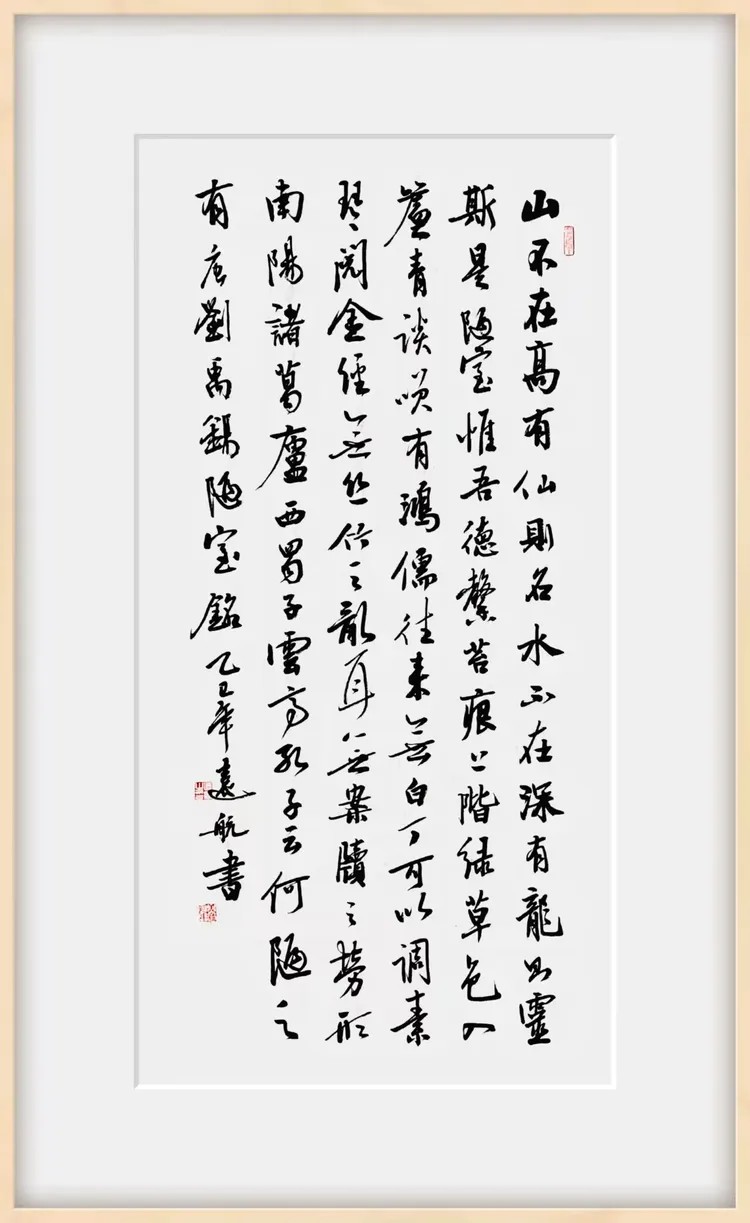 山不在高有仙則名水不在深有龍則靈
斯是陋室惟吾德馨苔痕上階綠草色入
簾青談笑有鴻儒往來無白丁可以調素
琴閱金經無絲竹之亂耳無案牘之勞形
南陽諸葛廬西蜀子雲亭孔子云何陋之
有唐劉禹錫陋室銘乙巳年遠航書